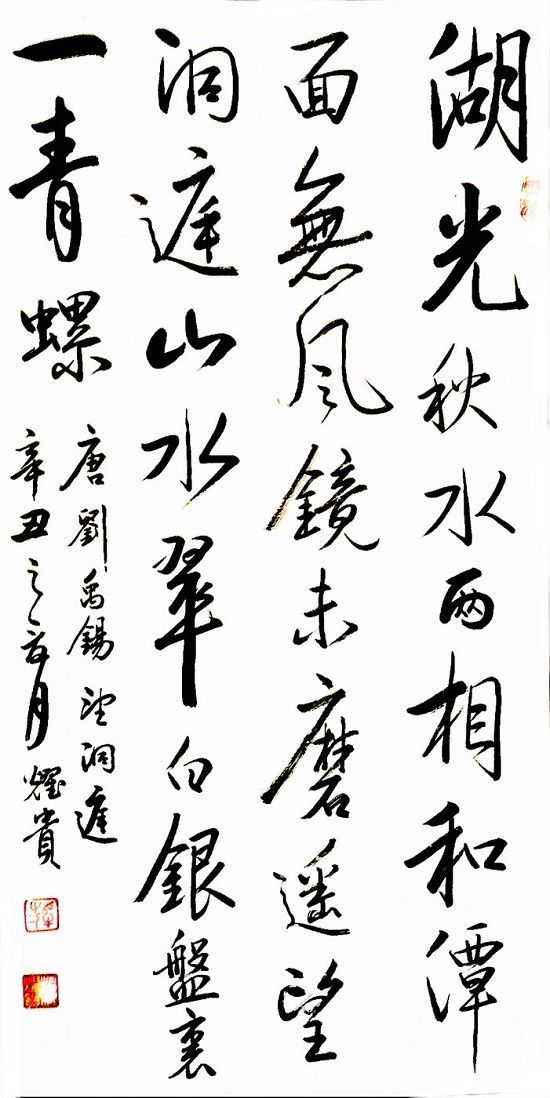 湖光秋水两相和潭
面無風鏡未磨遥望
洞庭山水翠白銀盤裏
一青螺
唐劉禹錫望洞庭
辛丑之月燿貴